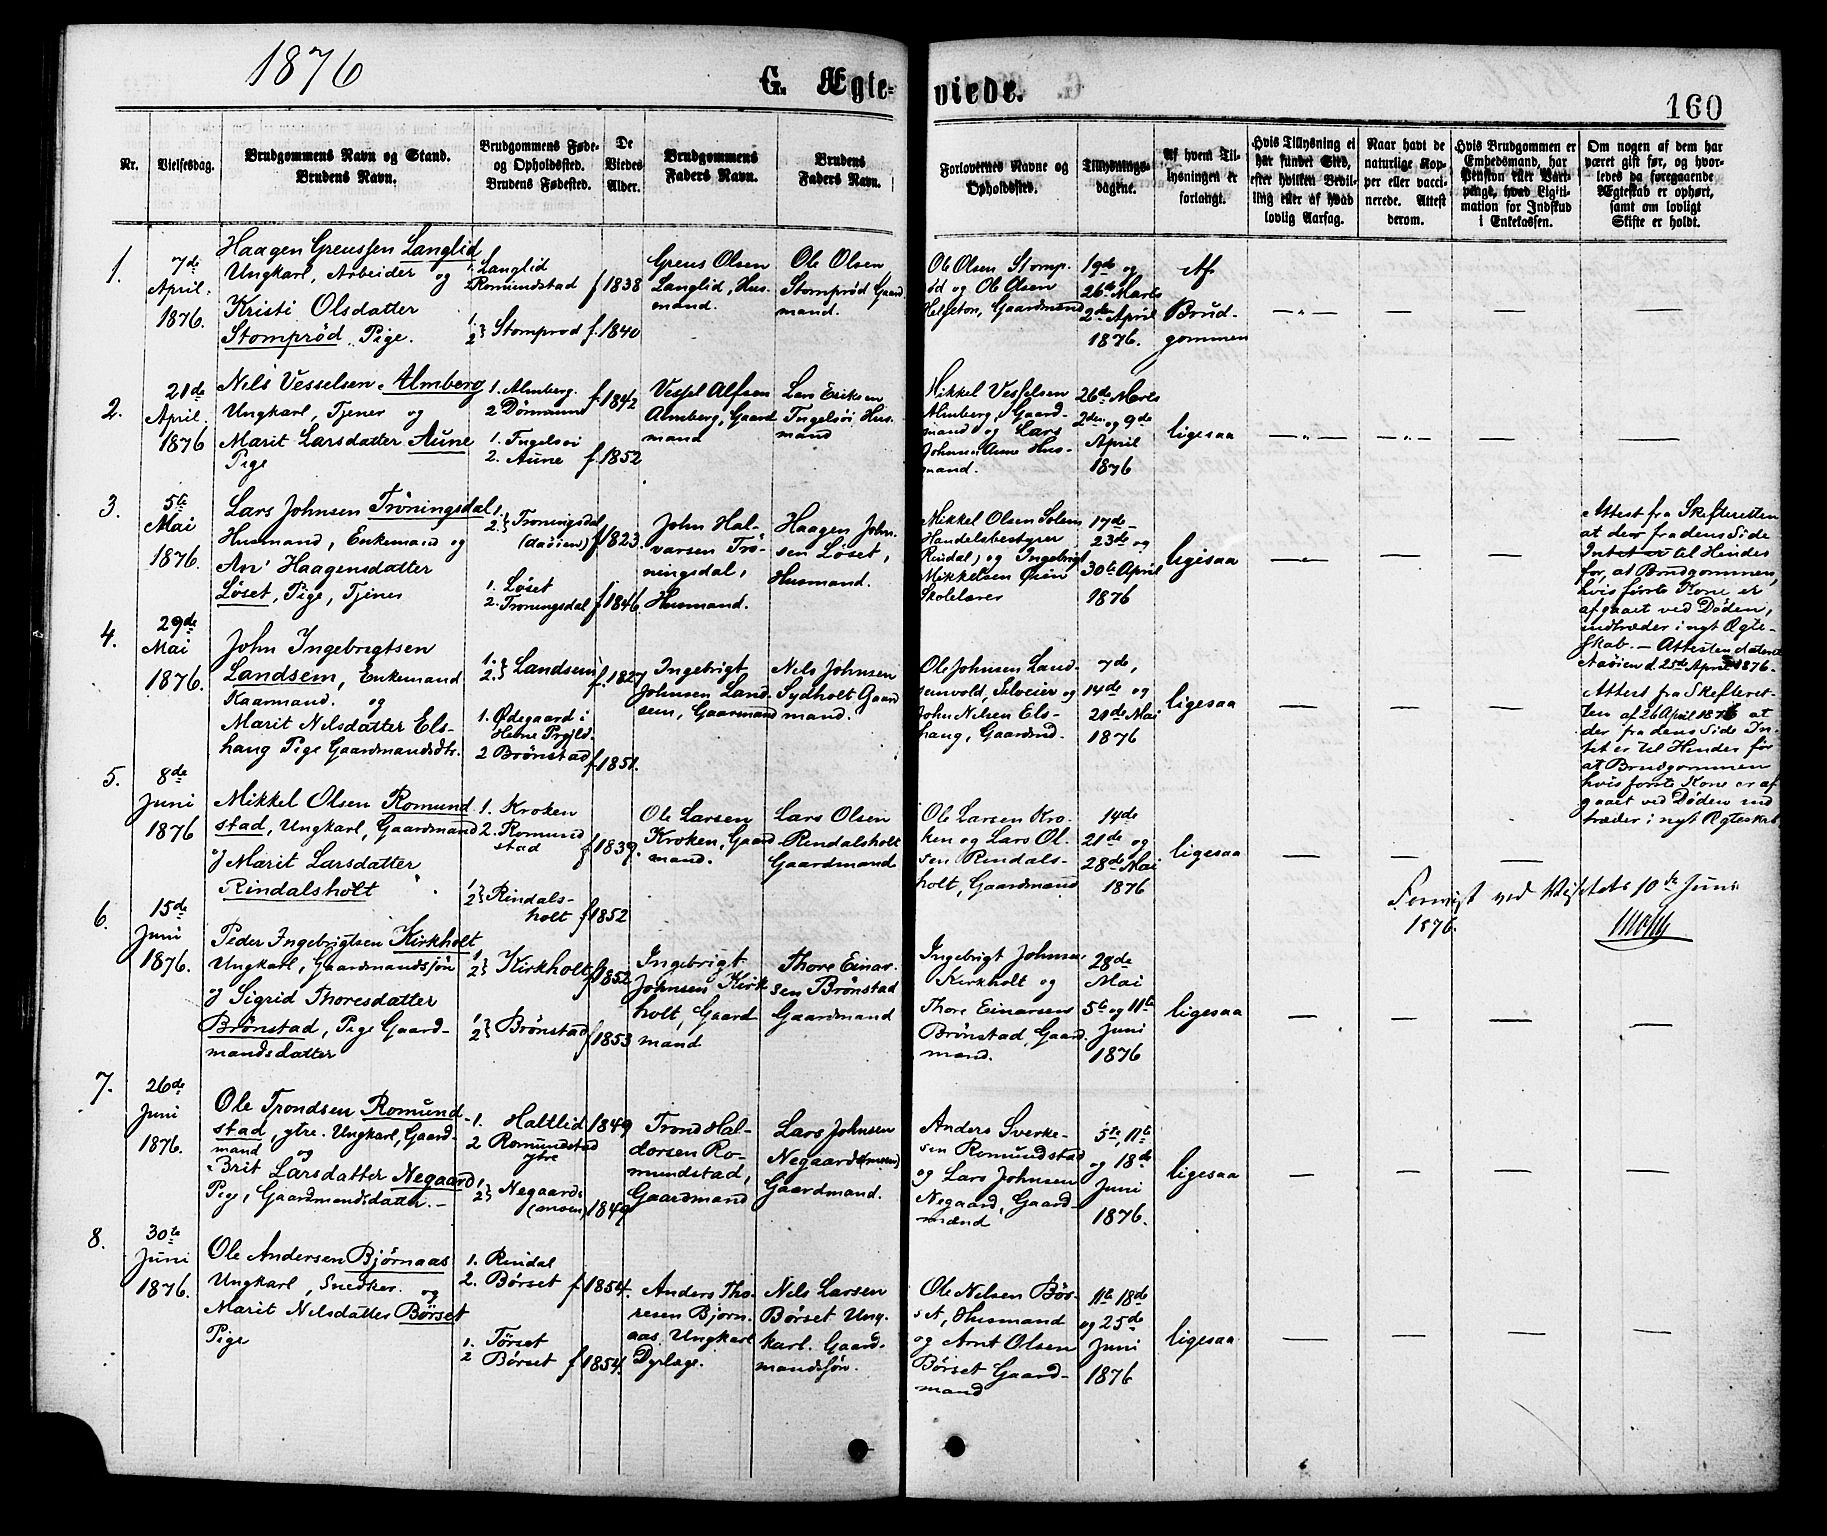 1876
G. Ægte-
viede.
160
Nr.
Vielsesdag.
Brudgommens Navn og Stand.
Brudens Navn.
Brudgommens Føde-
og Opholdssted.
Brudens Fødested.
De
Viedes
Alder.
Brudgommens
Faders Navn.
Brudens
Faders Navn.
Forlovernes Navne og
Opholdssted.
Tillysnings-
dagene.
Af hvem Til-
lysningen er
forlangt.
Hvis Tillysning ei
har fundet Sted,
efter hvilken Bevil-
ling eller af hvad
lovlig Aarsag.
Naar havt de
naturlige Kop-
per eller vacci-
nerede. Attest
derom.
Hvis Brudgommen er
Embedsmand, har
Pension eller Vart-
penge, hvad Ligiti-
mation for Indskud
i Enkekassen.
Om nogen af dem har
været gift før, og hvor-
ledes da foregaaende
Ægteskab er ophørt,
samt om lovligt
Skifte er holdt.
1.
7de
April.
1876.
Haagen Greussen Langlid
Ungkarl, Arbeider og
Kristi Olsdatter
Stomprød, Pige.
1. Langlid
2 Romundstad
f 1838
1.
2 } Stomprod f. 1840
Greus Olsen
Langlid, Hus-
mand.
Ole Olsen
Stomprød Gaard
mand.
Ole Olsen Stomp-
rød og Ole Olsen
Helgeton, Gaardmænd
19de og
26de Marts
2den April
1876.
Af
Brud-
gommen
2.
21de
April.
1876
Nils Vesselsen Almberg
Ungkarl, Tjener og
Marit Larsdatter Aune
Pige
1. Almberg.
2 Dønnum
f. 1842
1. Ingelsøi
2. Aune f. 1852
Vessel Alfsen
Almberg, Gaard
mand
Lars Eriksen
Ingelsøi Hus-
mand
Mikkel Vesselsen
Almberg, Gaard-
mand og Lars
Johnsen Aune Hus-
mand.
26de Marts
2den og 9de
April
1876
ligesaa
3.
5te
Mai
1876.
Lars Johnsen Troningsdal
Husmand, Enkemand og
An' Haagensdatter
Løset, Pige, Tjener
1.
2. } Troningsdal
(daøien) f 1823.
1. Løset
2. Troningsdal f 1846.
John Hal-
varsen Tro-
ningsdal,
Husmand.
Haagen John-
sen Løset,
Husmand.
Mikkel Olsen Solem
Handelsbestyrer
Rindal) og Ingebrigt
Mikkelsen Øien
Skolelærer
17de-
23de og
30te April
1876
ligesaa
Attest fra Skifteretten
at der fra dens Side
Intet er til Hinder
for, at Brudgommen,
hvis første Kone er
afgaaet ved Døden,
indtræder i nyt Ægte-
skab. — Attesten dateret
Aaøien d. 25de April 1876.
4.
29de
Mai
1876.
John Ingebrigtsen
Landsem, Enkemand
Kaarmand. og
Marit Nilsdatter Els-
haug Pige Gaardmandsdtr.
1.
2. } Landsem
f. 1827
1. Ødegaard i
Hevne Prgjld.
2 Brønstad f. 1851.
Ingebrigt
Johnsen Land-
sem, Gaarmand
Nils Johnsen
Sydholt Gaard
mand.
Ole Johnsen Land-
semvold, Selveier og
John Nilsen Els-
haug, Gaardmd.
7de,
14de og
21de Mai
1876
ligesaa
Attest fra Skifteret-
ten af 26 April 1876 at
der fra dens Side In-
tet er til Hinder for
at Brudgommen
hvis forste Kone er af
gaaet ved Døden ind
træder i nyt Ægteskab
5.
8de
Juni
1876
Mikkel Olsen Romund
stad, Ungkarl, Gaardmand
og Marit Larsdatter
Rindalsholt
1. Kroken
2. Romund
stad
f 1839.
1
2 } Rindals-
holt f 1852
Ole Larsen
Kroken, Gaard
mand.
Lars Olsen
Rindalsholt
Gaardmand
Ole Larsen Kro-
ken og Lars Ol-
sen Rindals-
holt, Gaardmænd
14de
21de og
28de Mai
1876
ligesaa
ved Visitats 10de Juni
1876.
6.
15de
Juni
1876.
Peder Ingebrigtsen Kirkholt
Ungkarl, Gaardmandssøn
og Sigrid Thoresdatter
Brønstad, Pige Gaard-
mandsdatter
1
2 } Kirkholt f 1852
1
2 } Brønstad f 1853
Ingebrigt
Johnsen Kirk
holt, Gaard
mand
Thore Einar-
sen Brønstad
Gaardmand
Ingebrigt Johnsen
Kirkholt og
Thore Einarsen
Brønstad, Gaard-
mænd.
28de
Mai
5te og 11te
Juni
1876
ligesaa
7.
26de
Juni
1876.
Ole Trondsen Romund-
stad, ytre. Ungkarl, Gaard-
mand og
Brit Larsdatter Negaard
Pige, Gaardmandsdatter. —
1. Haltlid 1849
2 Romundstad
ytre
1
2 } Negaard
(moen) 1849
Trond Hal-
dorsen Ro-
mundstad,
Gaardmand
Lars Johnsen
Negaard (moen)
Gaardmand.
Anders Sverke-
sen Romundstad
og Lars Johnsen
Negaard, Gaard-
mænd
5te, 11te
og 18de
Juni
1876.
ligesaa
8.
30te
Juni
1876.
Ole Andersen Bjørnaas
Ungkarl, Snedker. og
Marit Nilsdatter Børset
Pige
1. Rindal
2. Børset f 1854.
1. Tørset
2 Børset f 1854.
Anders Tho-
resen Bjørn-
aas, Ungkarl
Dyrlæge.
Nils Larsen
Børset Ung-
karl. Gaard-
mandssøn.
Ole Nilsen Bør-
set, Husmand
og Arnt Olsen
Børset Gaard-
mand
11te 18de
og 25de
Juni
1876
ligesaa